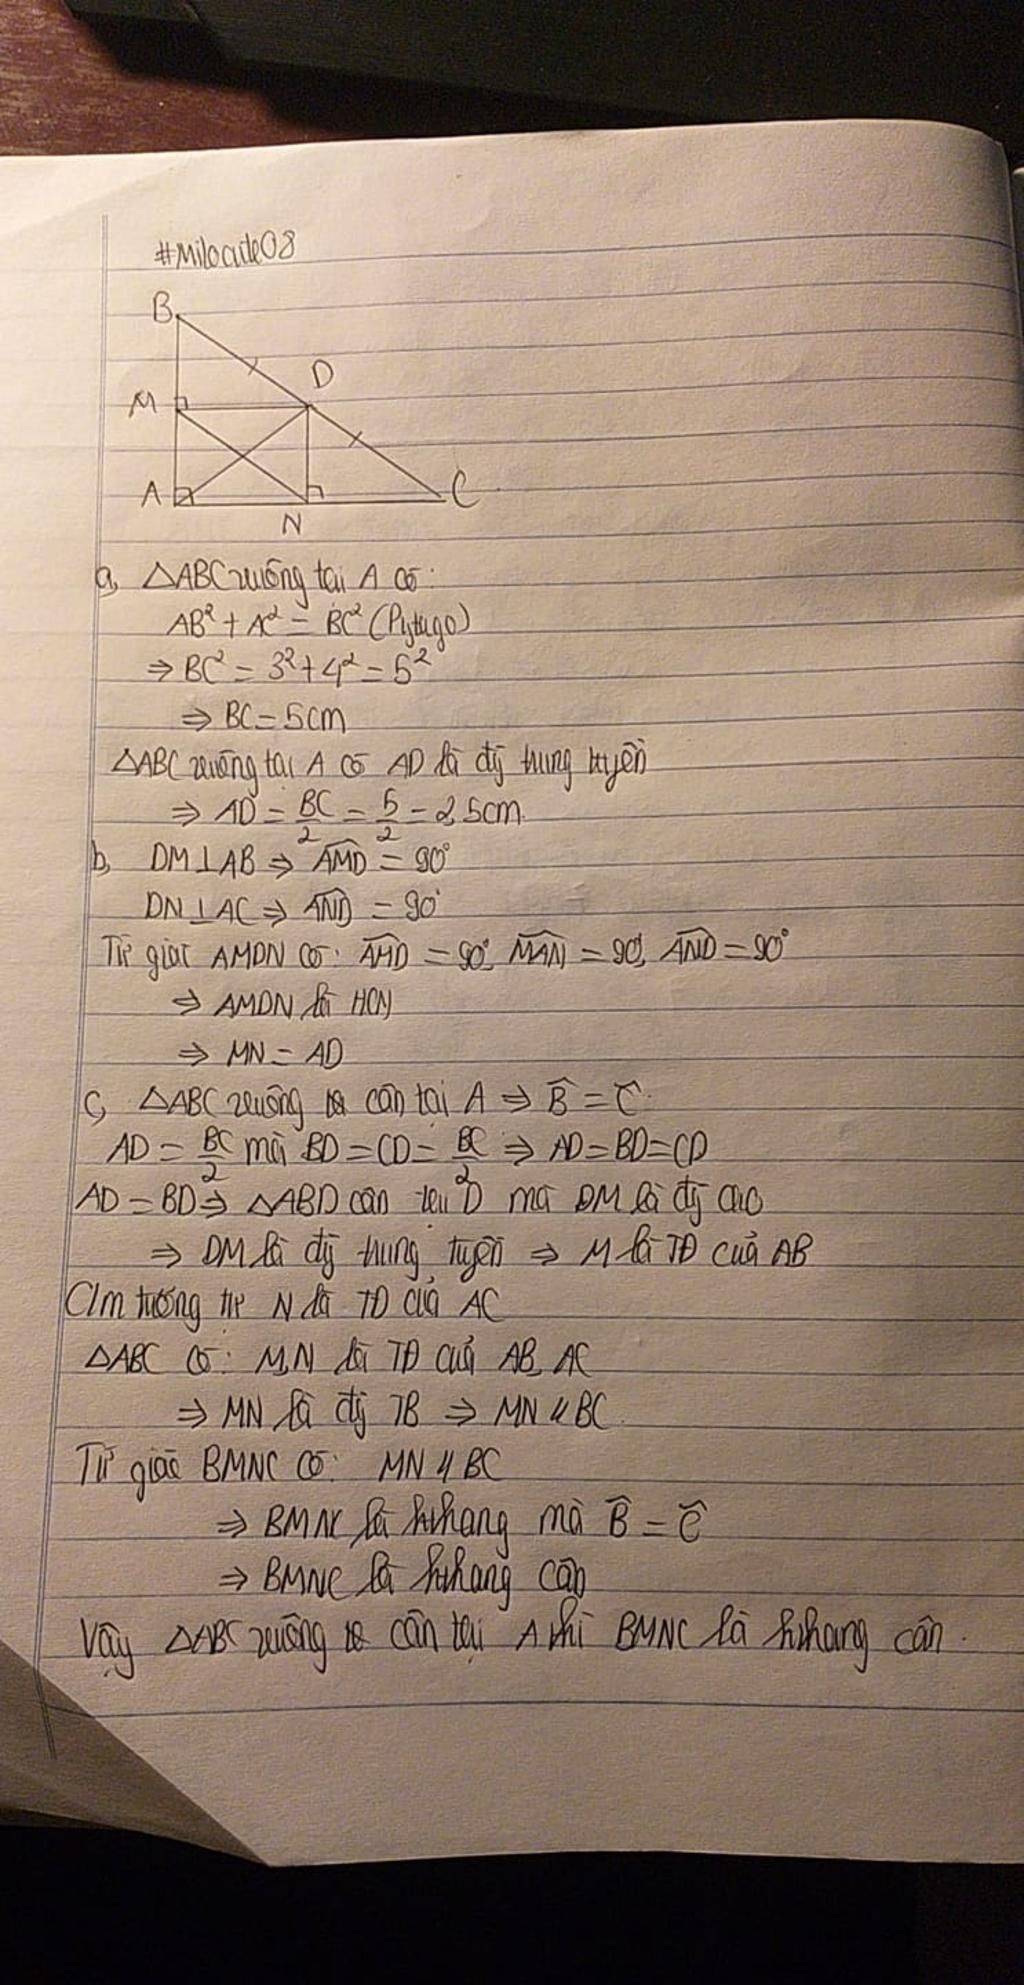 #Milocute08
B
D
M
A
C
N
a, △ABC vuông tại A có:
AB² + AC² = BC² (Pytago)
⇒ BC² = 3² + 4² = 5²
⇒ BC = 5cm
△ABC vuông tại A có AD là đg trung tuyến
⇒ AD = BC/2 = 5/2 = 2,5cm
b, DM⊥AB ⇒ \widehat{AMD} = 90°
DN⊥AC ⇒ \widehat{AND} = 90°
Tứ giác AMDN có: \widehat{AMD} = 90°, \widehat{MAN} = 90°, \widehat{AND} = 90°
⇒ AMDN là HCN
⇒ MN = AD
c, △ABC vuông cân tại A ⇒ \widehat{B} = \widehat{C}
AD = BC/2 mà BD = CD = BC/2 ⇒ AD = BD = CD
AD = BD ⇒ △ABD cân tại D mà DM là đg cao
⇒ DM là đg trung tuyến ⇒ M là TĐ của AB
C/m tương tự N là TĐ của AC
△ABC có: M,N là TĐ của AB, AC
⇒ MN là đg TB ⇒ MN // BC
Tứ giác BMNC có: MN // BC
⇒ BMNC là hthang mà \widehat{B} = \widehat{C}
⇒ BMNC là hthang cân
Vậy △ABC vuông cân tại A thì BMNC là hthang cân.